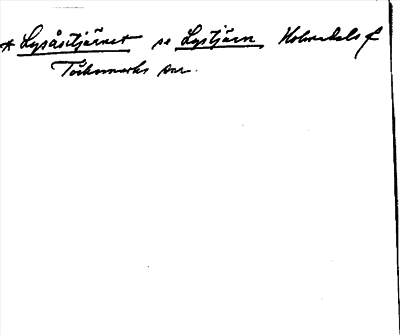 * Lysåsitjärnet se Lystjärn Holmedals f
Töcksmarks snr.